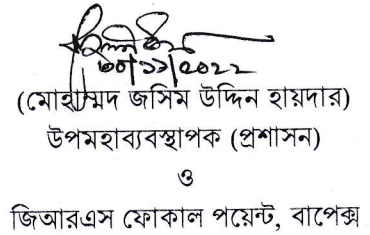 ৩০/১১/২০২২
(মোহাম্মদ জসিম উদ্দিন হায়দার)
উপমহাব্যবস্থাপক (প্রশাসন)
ও
জিআরএস ফোকাল পয়েন্ট, বাপেক্স